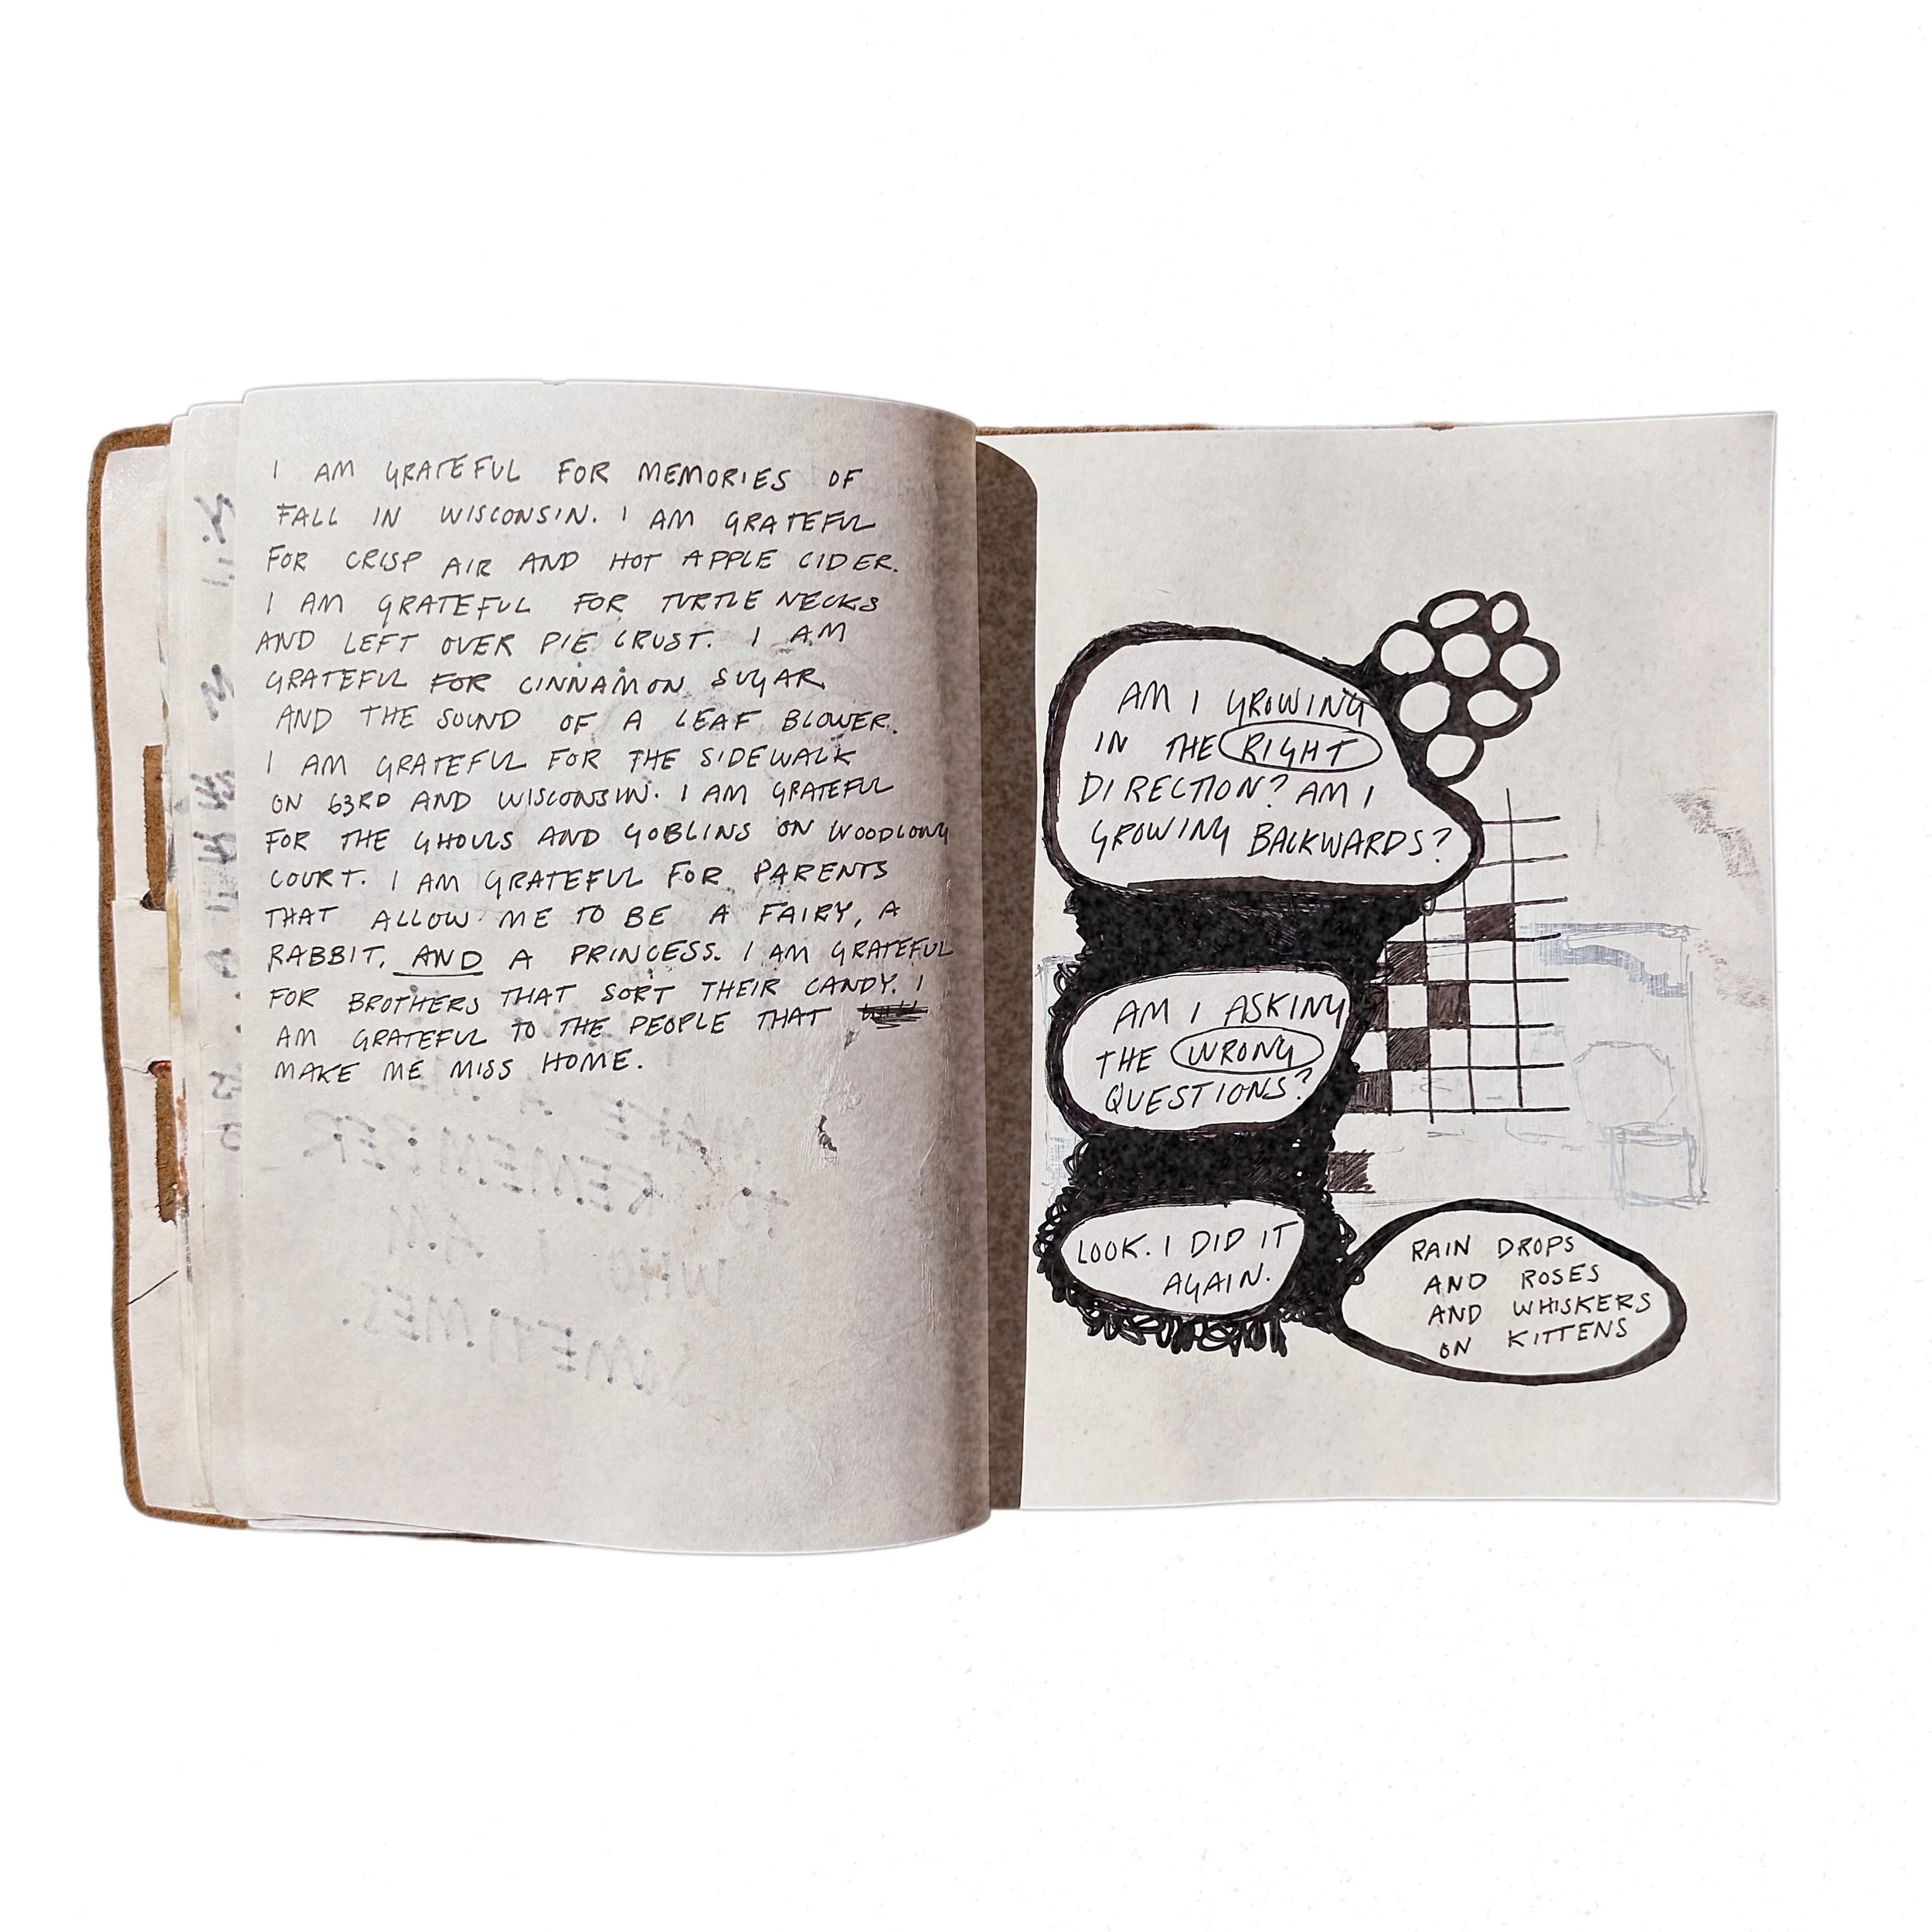 I AM GRATEFUL FOR MEMORIES OF
FALL IN WISCONSIN. I AM GRATEFUL
FOR CRISP AIR AND HOT APPLE CIDER.
I AM GRATEFUL FOR TURTLE NECKS
AND LEFT OVER PIE CRUST. I AM
GRATEFUL FOR CINNAMON SUGAR
AND THE SOUND OF A LEAF BLOWER.
I AM GRATEFUL FOR THE SIDEWALK
ON 63RD AND WISCONSIN. I AM GRATEFUL
FOR THE GHOULS AND GOBLINS ON WOODLONG
COURT. I AM GRATEFUL FOR PARENTS
THAT ALLOW ME TO BE A FAIRY, A
RABBIT, AND A PRINCESS. I AM GRATEFUL
FOR BROTHERS THAT SORT THEIR CANDY. I
AM GRATEFUL TO THE PEOPLE THAT
MAKE ME MISS HOME.
MAKE A
TO REMEMBER
WHO I AM
SOMETIMES.
AM I GROWING
IN THE RIGHT
DIRECTION? AM I
GROWING BACKWARDS?
AM I ASKING
THE WRONG
QUESTIONS?
LOOK. I DID IT
AGAIN.
RAIN DROPS
AND ROSES
AND WHISKERS
ON KITTENS